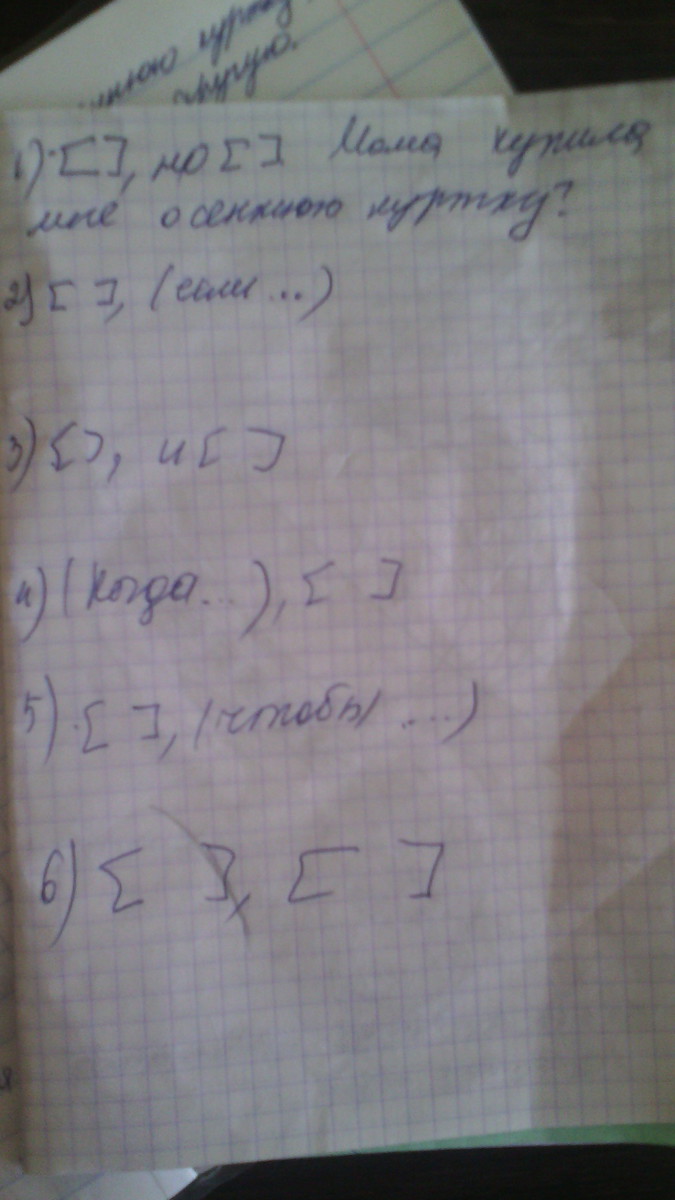 куртку
другую.
1) [ ], но [ ] Мама купила
мне осеннюю куртку?
2) [ ], (если ...)
3) [ ], и [ ]
4) (Когда...), [ ]
5) [ ], (чтобы ....)
6) [ ], [ ]